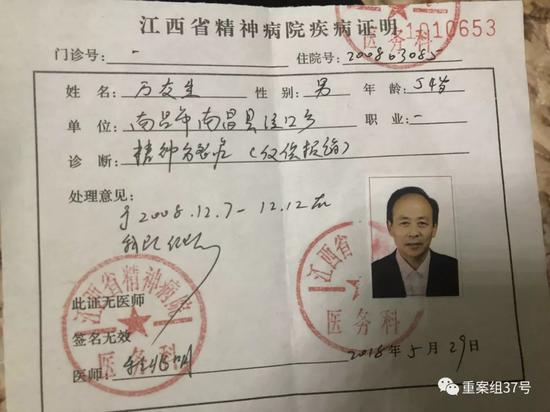 江西省精神病院疾病证明
1010653
医务科
门诊号: - 住院号: 200863085
姓名: 万友生 性别: 男 年龄: 54岁
单位: 南昌市南昌县泾口乡 职业: 一
诊断: 精神分裂症(仅供报销)
处理意见:
于2008.12.7-12.12在
我院住院
江西省精神病院
医务科
江西省
医务科
此证无医师
签名无效
医师:
2018年5月29日
重案组37号